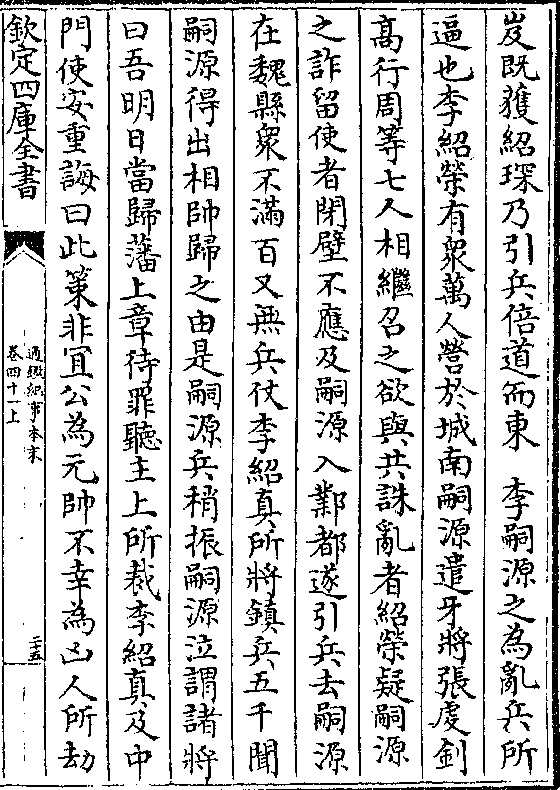 岌既獲紹琛乃引兵倍道而東　李嗣源之為亂兵所
逼也李紹榮有衆萬人營於城南嗣源遣牙將張虔釗
髙行周等七人相繼召之欲與共誅亂者紹榮疑嗣源
之詐留使者閉壁不應及嗣源入鄴都遂引兵去嗣源
在魏縣衆不滿百又無兵仗李紹真所將鎮兵五千聞
嗣源得出相帥歸之由是嗣源兵稍振嗣源泣謂諸將
曰吾明日當歸藩上章待罪聽主上所裁李紹真及中
門使安重誨曰此策非宜公為元帥不幸為凶人所劫
欽定四庫全書
通鑑紀事本末
卷四十一上
二十五